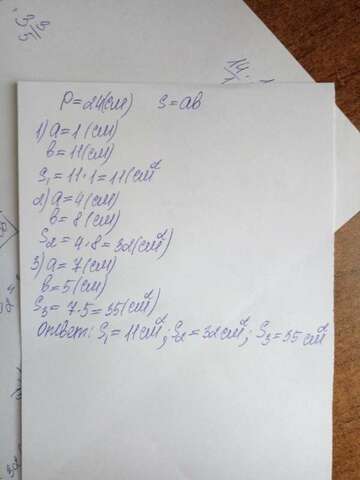 P=24(см) S=ab
1) a=1(см)
b=11(см)
S₁=11·1=11(см²
2) a=4(см)
b=8(см)
S₂=4·8=32(см²)
3) a=7(см)
b=5(см)
S₃=7·5=35(см²)
Ответ: S₁=11см²; S₂=32см²; S₃=35см²
14